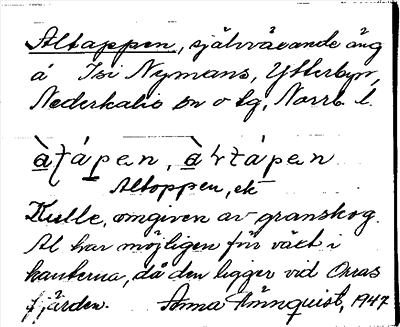 Altappen, självvåxande äng
å Isi Nymans, Ytterbyn,
Nederkalix sn o tg, Norrb. l.
Altoppen, ek
Kulle, omgiven av granskog.
Al har möjligen förr växt i
kanterna, då den ligger vid
fjärden. Anna Rönnquist, 1947